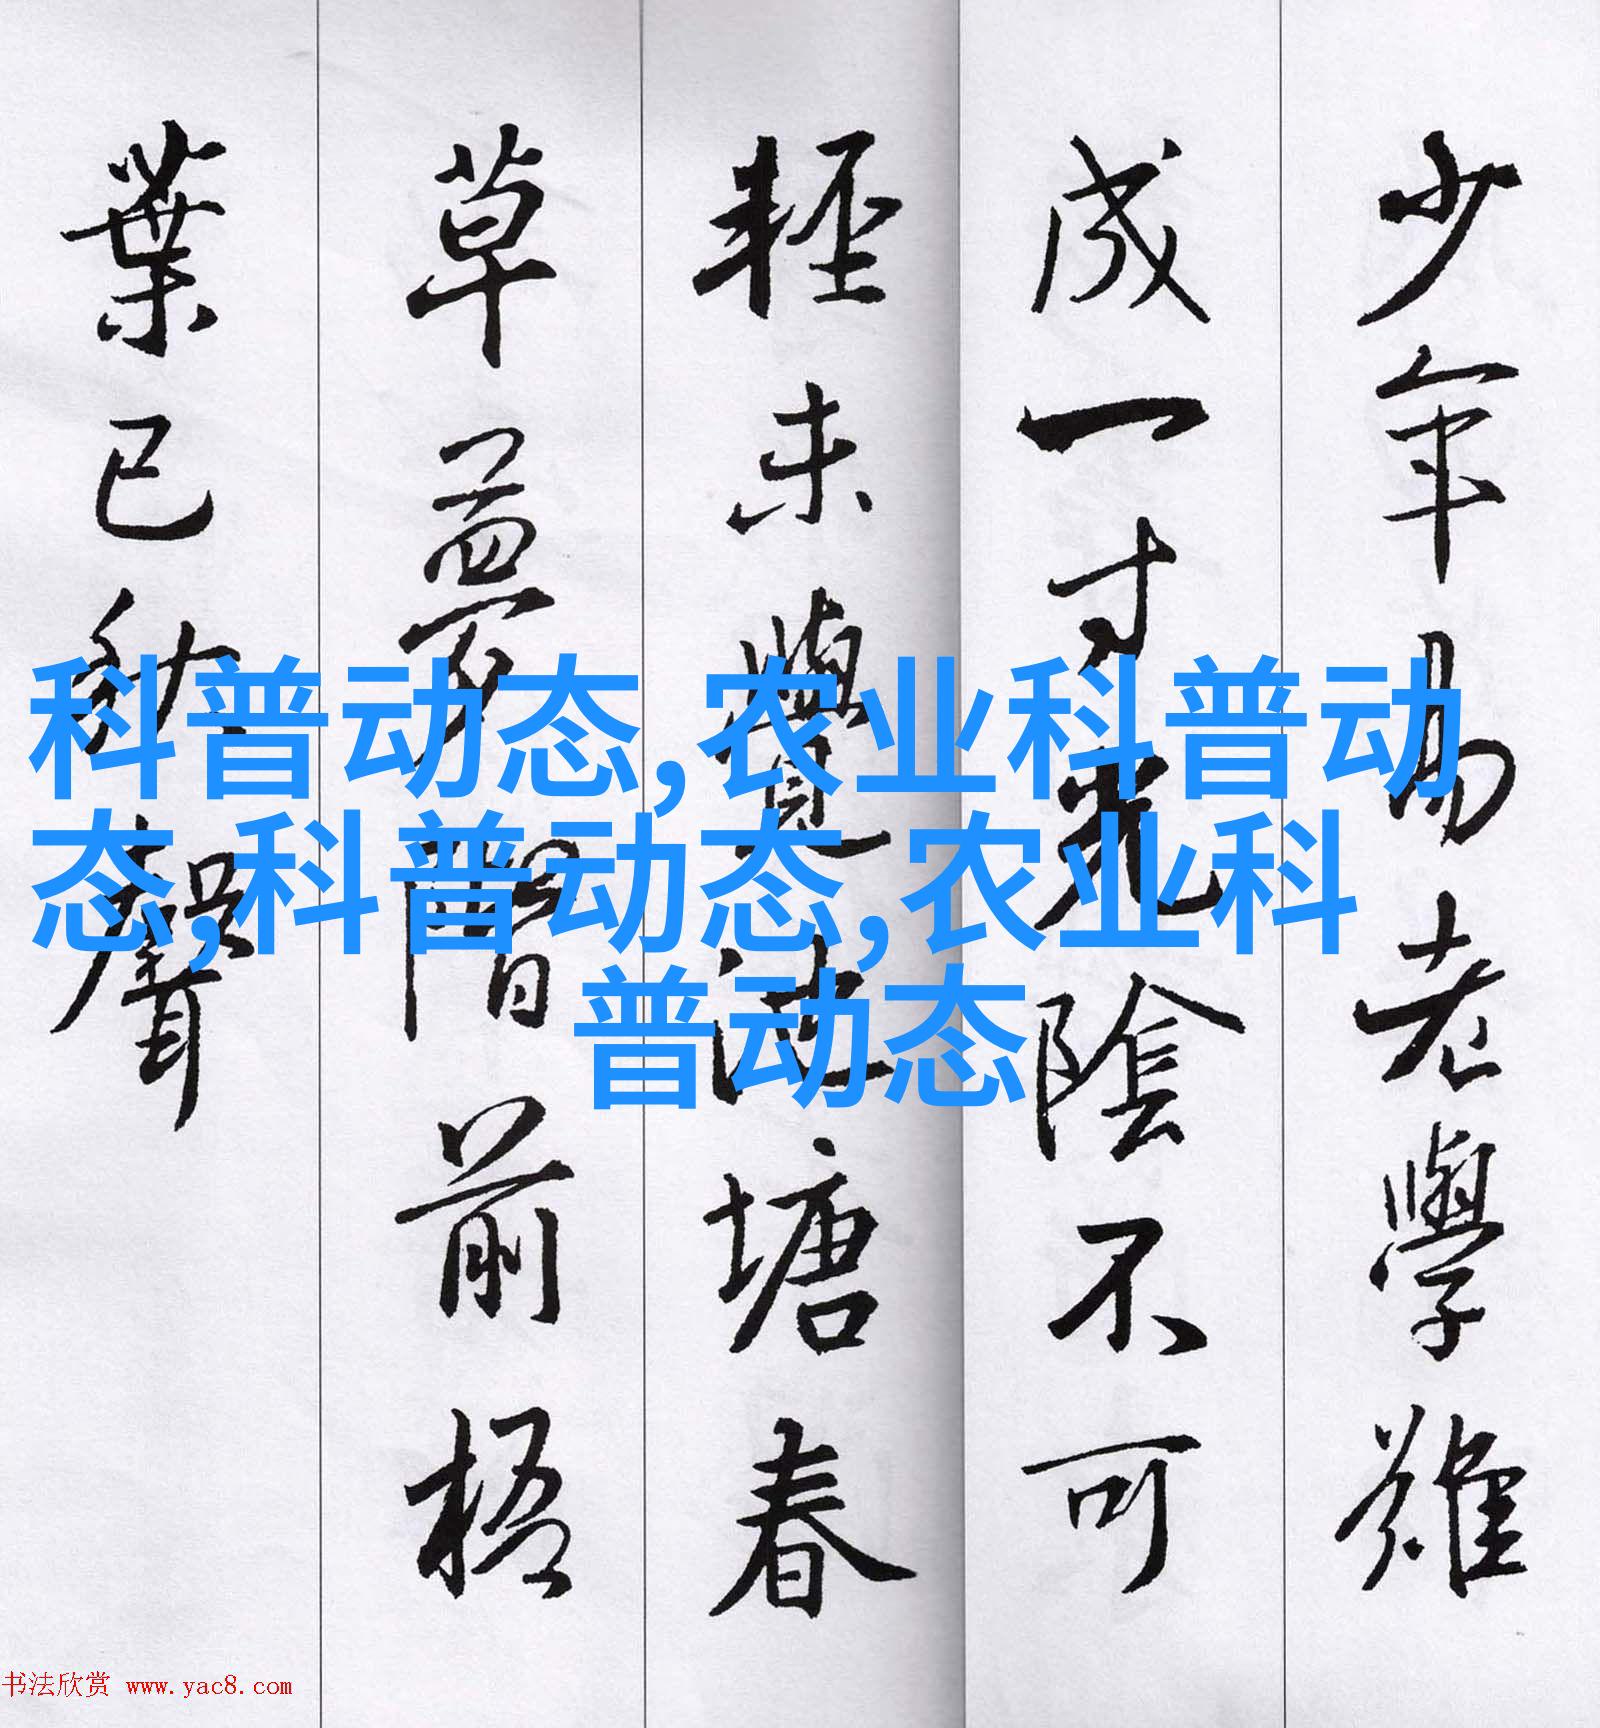 少年易老學難
成一寸光陰不可
輕未覺池塘春
草夢階前梧
葉已秋聲
科普动态,农业科普动
态,科普动态,农业科
普动态
书法欣赏 www.yac8.com